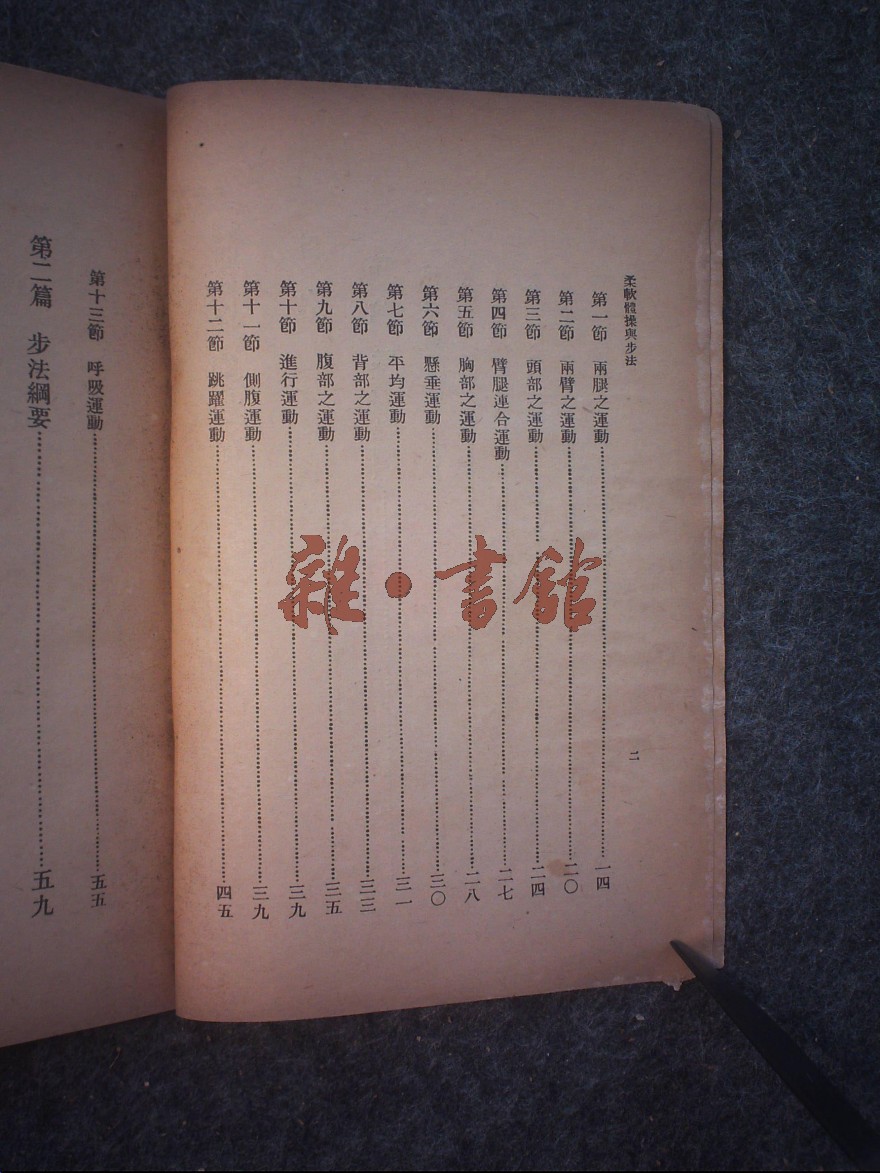 柔軟體操與步法
二
第一節 兩腿之運動……一四
第二節 兩臂之運動……二〇
第三節 頭部之運動……二四
第四節 臂腿連合運動……二七
第五節 胸部之運動……二八
第六節 懸垂運動……三〇
第七節 平均運動……三一
第八節 背部之運動……三三
第九節 腹部之運動……三五
第十節 進行運動……三九
第十一節 側腹運動……三九
第十二節 跳躍運動……四五
第十三節 呼吸運動……五五
第二篇 步法綱要……五九
雜·書館